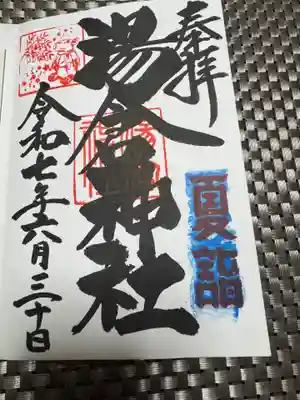 奉拝
夏詣
湯倉神社
令和七年六月三十日